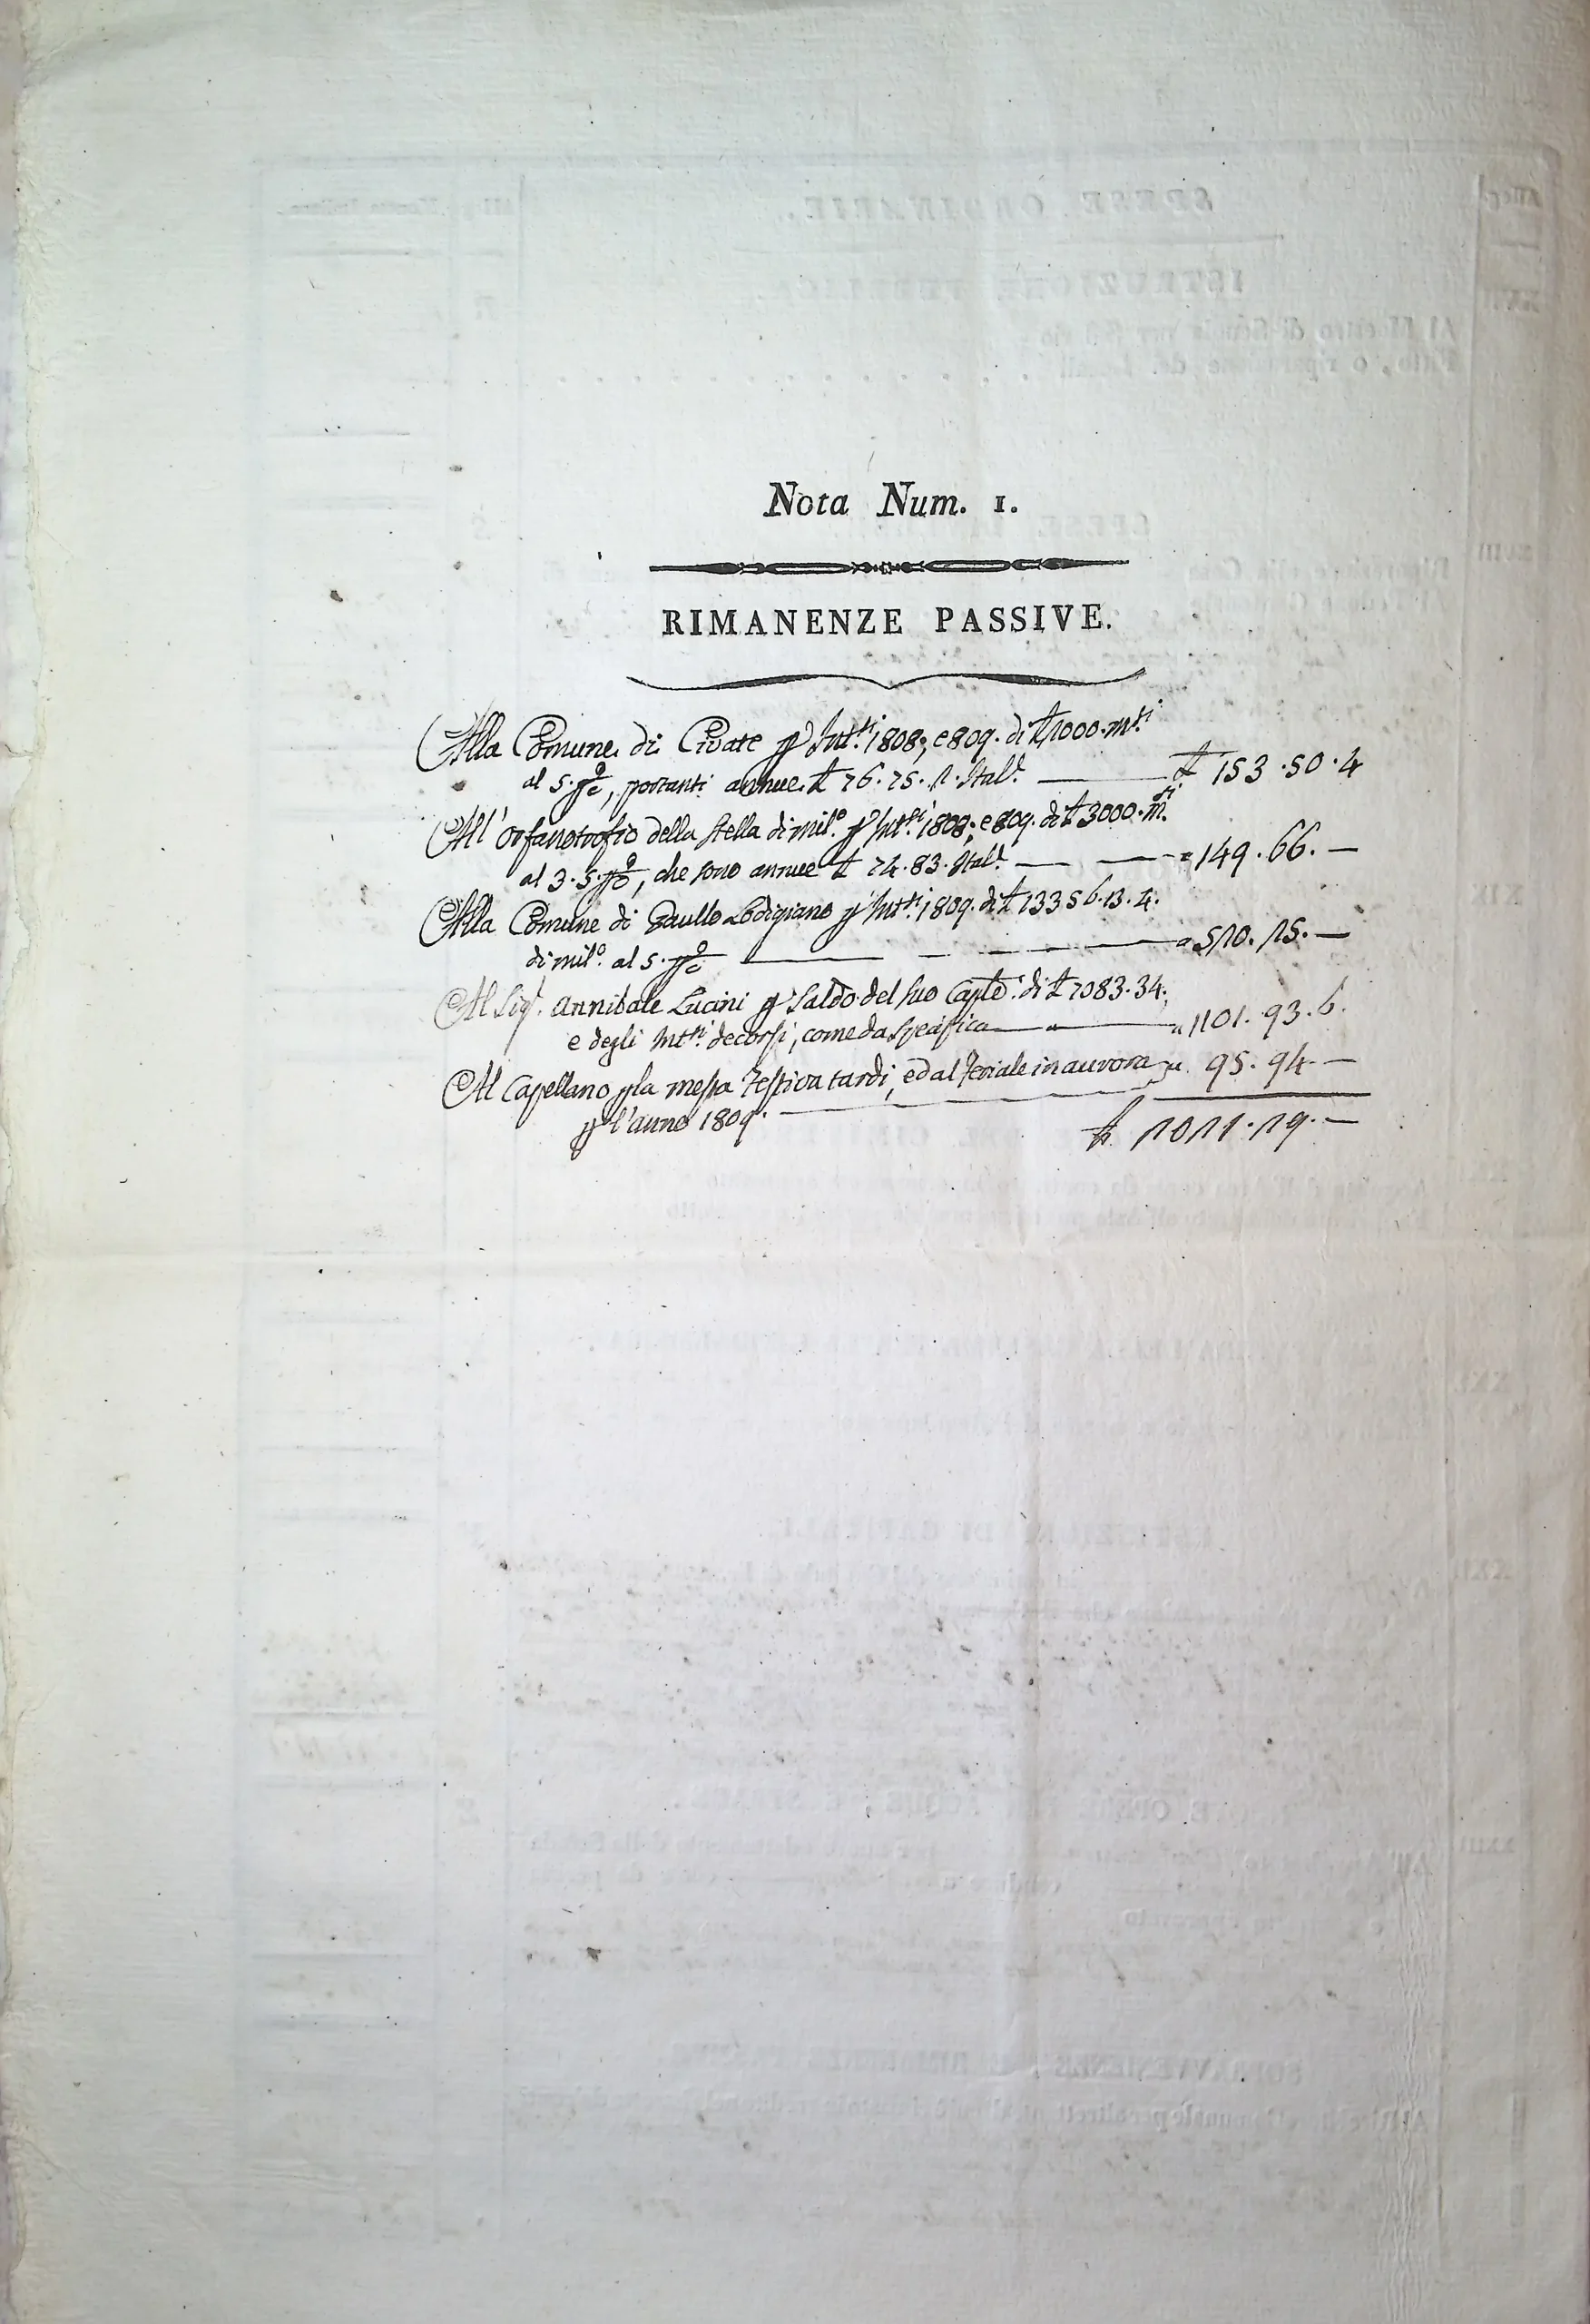 Nota Num. 1.
RIMANENZE PASSIVE.
Alla Comune di Civate p Int.si 1808, e 809. di £ 1000. m.ti
al 5. p%, portanti annue £ 76. 75. 2. Ital.e £ 153. 50. 4
All'Orfanotrofio della Stella di Mil.o p Int.si 1808, e 809. di £ 3000. m.ti
al 3. 5. p%, che sono annue £ 74. 83. Ital.e " 149. 66. —
Alla Comune di Paullo Lodigiano p Int.si 1809. di £ 13356. 13. 4.
di Mil.o al 5. p% " 510. 15. —
Al Sig.r Annibale Lucini p Saldo del suo Caple. di £ 7083. 34.
e degli Int.si decorsi, come da Specifica " 1101. 93. 6.
Al Capellano p la messa Festiva tardi, ed al Feriale in aurora " 95. 94. —
p l'anno 1809. £ 2011. 19. —